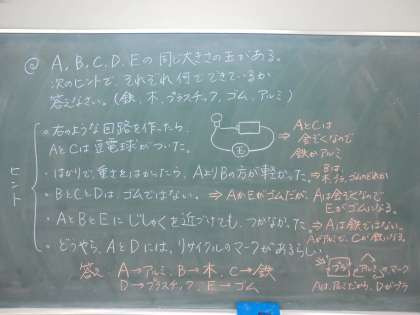 @ A、B、C、D、Eの同じ大きさの玉がある。
次のヒントで、それぞれ何でできているか
答えなさい。(鉄、木、プラスチック、ゴム、アルミ)
ヒント
・右のような回路を作ったら、
AとCは豆電球がついた。
玉
⇒ AとCは
金ぞくなので
鉄かアルミ
・はかりで、重さをはかったら、AよりBの方が軽かった。
⇒ Bは
木、プラ、ゴムのどれか
・BとCとDは、ゴムではない。⇒ AかEがゴムだが、Aは金ぞくなので
Eがゴムになる。
・AとBとEにじしゃくを近づけても、つかなかった。⇒ Aは鉄ではない。
Aがアルミで、Cが鉄になる。
・どうやら、AとDには、リサイクルのマークがあるらしい。
プラ アルミ マーク
Aはアルミだから、Dがプラ
答え A→アルミ、B→木、C→鉄
D→プラスチック、E→ゴム